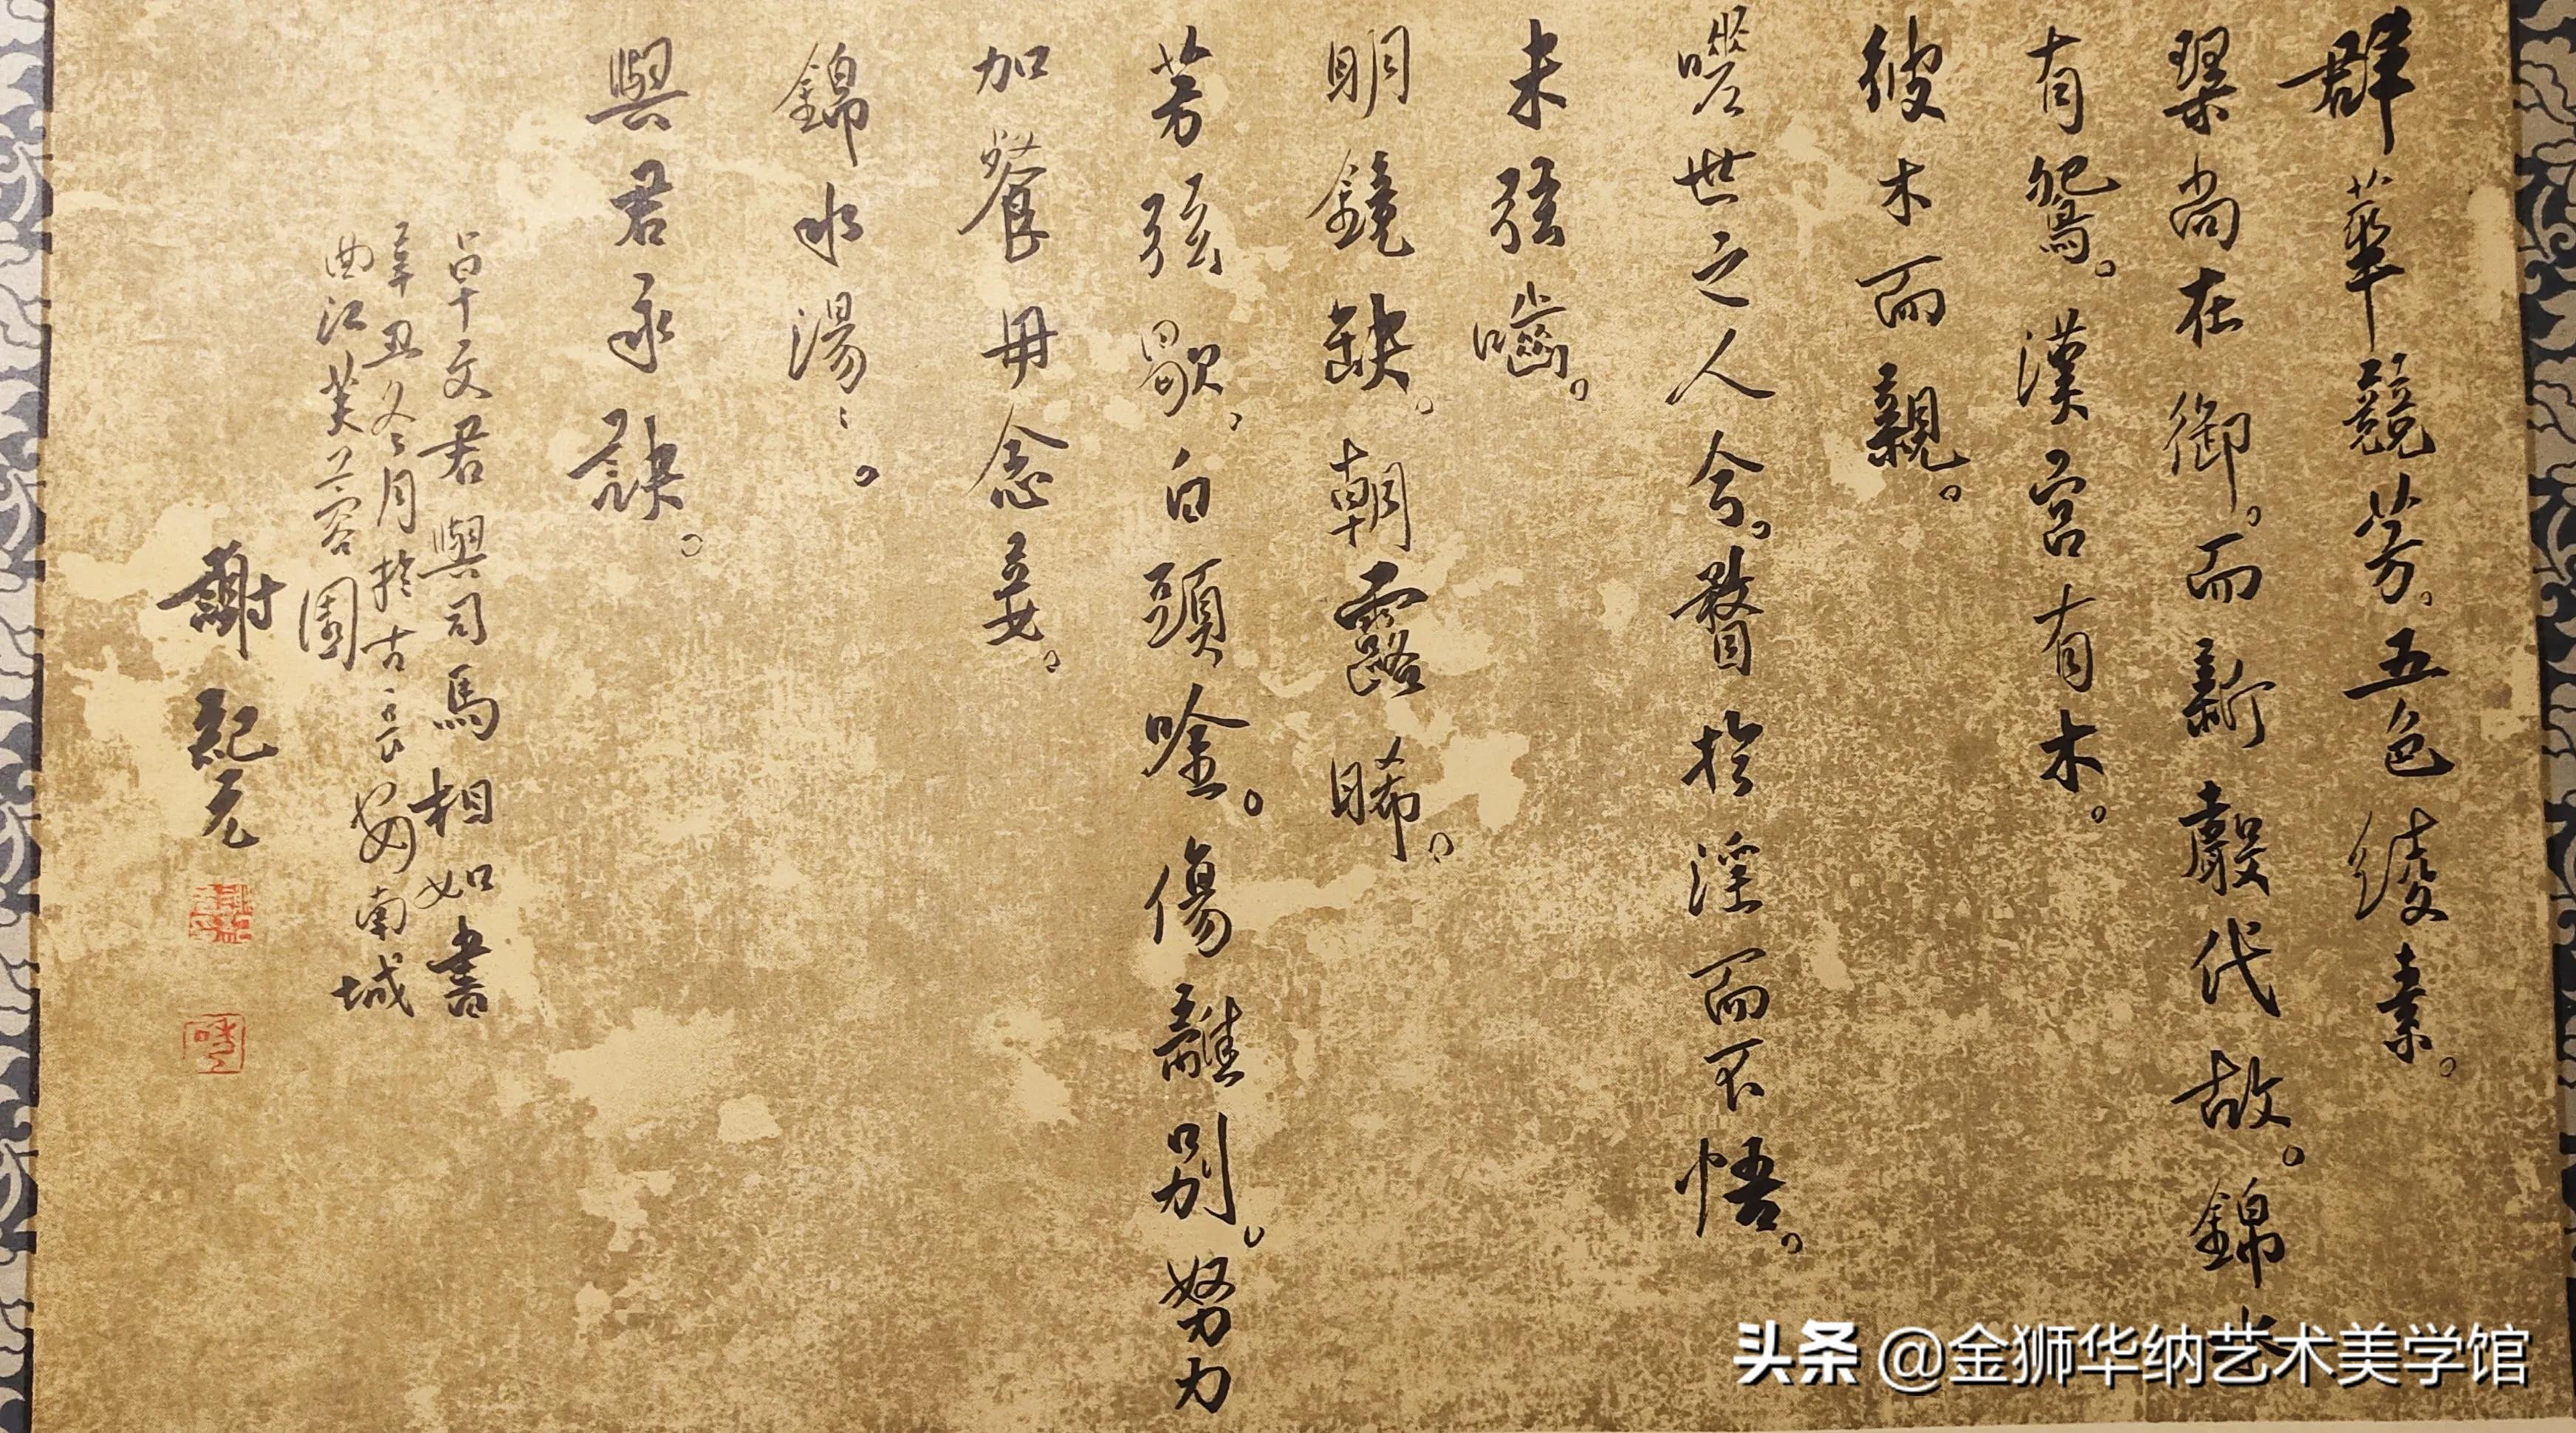 群華競芳。五色綾素。
琹尚在御。而新聲代故。錦水
有鴛。漢宮有木。
彼木而親。
嗟世之人兮。瞀於淫而不悟。
朱弦嚙。
明鏡缺。朝露晞。
芳弦歇，白頭唫。傷離别。努力
加餐毋念妾。
錦水湯〻。
與君永訣。
卓文君與司馬相如書
辛丑冬月於古長安南城
曲江芙蓉園
謝紀元
头条 @金狮华纳艺术美学馆